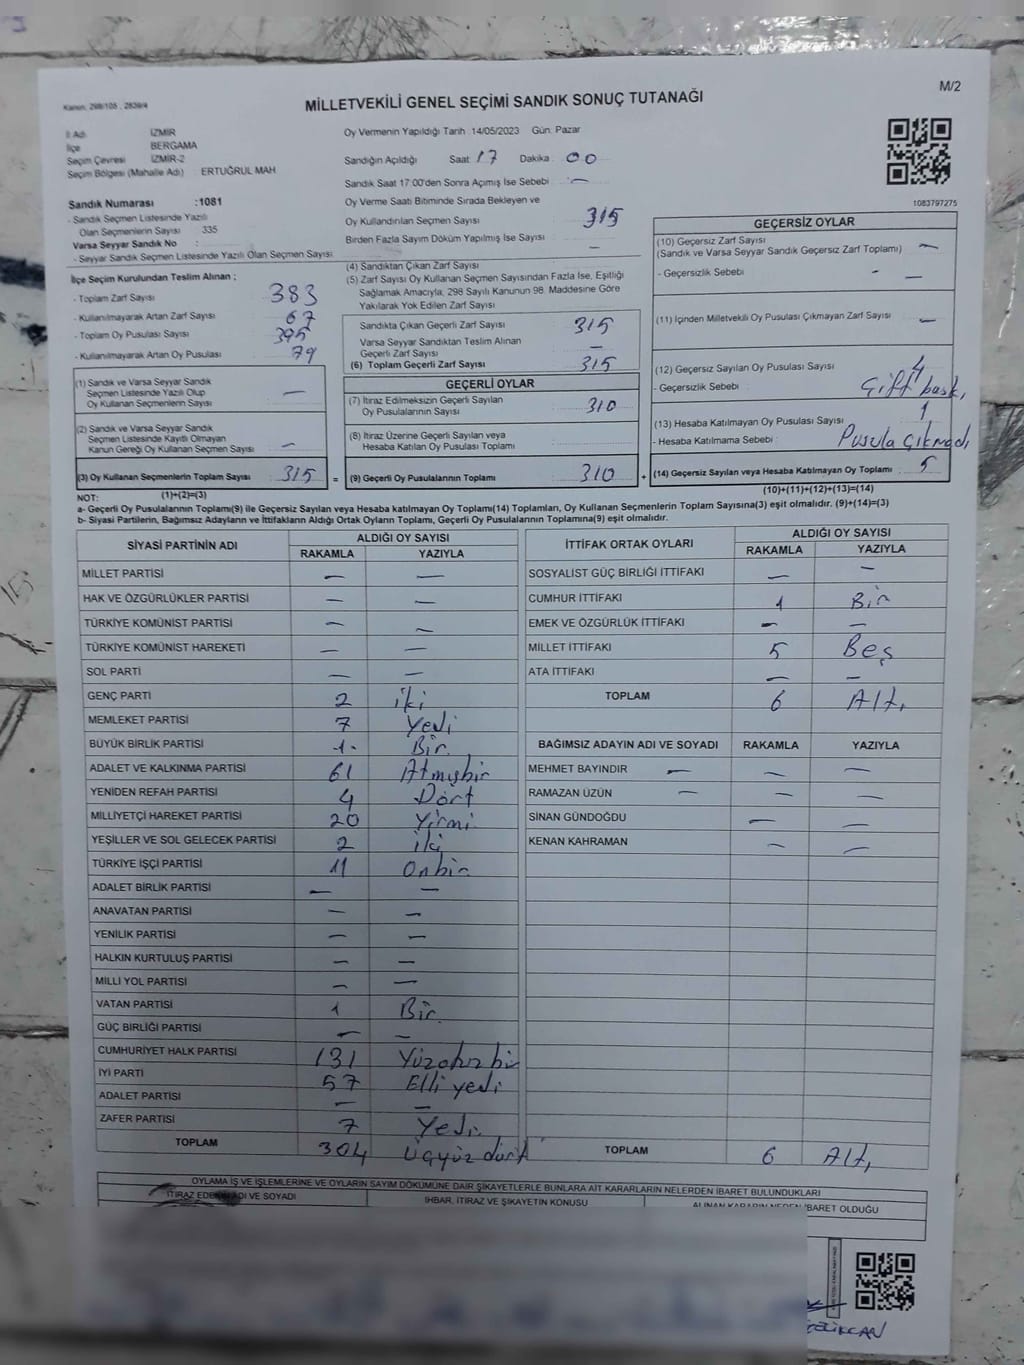 M/2
Kanun: 298/105 , 2839/4
MİLLETVEKİLİ GENEL SEÇİMİ SANDIK SONUÇ TUTANAĞI
İl Adı İZMİR
İlçe BERGAMA
Seçim Çevresi İZMİR-2
Seçim Bölgesi (Mahalle Adı) ERTUĞRUL MAH
Sandık Numarası :1081
- Sandık Seçmen Listesinde Yazılı
Olan Seçmenlerin Sayısı 335
Varsa Seyyar Sandık No :
- Seyyar Sandık Seçmen Listesinde Yazılı Olan Seçmen Sayısı
Oy Vermenin Yapıldığı Tarih :14/05/2023 Gün: Pazar
Sandığın Açıldığı Saat: 17 Dakika : 00
Sandık Saat 17:00'den Sonra Açımış İse Sebebi : —
Oy Verme Saati Bitiminde Sırada Bekleyen ve
Oy Kullandırılan Seçmen Sayısı 315
Birden Fazla Sayım Döküm Yapılmış İse Sayısı —
1083797275
İlçe Seçim Kurulundan Teslim Alınan ;
- Toplam Zarf Sayısı 383
- Kullanılmayarak Artan Zarf Sayısı 67
- Toplam Oy Pusulası Sayısı 395
- Kullanılmayarak Artan Oy Pusulası 79
(1) Sandık ve Varsa Seyyar Sandık
Seçmen Listesinde Yazılı Olup
Oy Kullanan Seçmenlerin Sayısı —
(2) Sandık ve Varsa Seyyar Sandık
Seçmen Listesinde Kayıtlı Olmayan
Kanun Gereği Oy Kullanan Seçmen Sayısı —
(3) Oy Kullanan Seçmenlerin Toplam Sayısı 315 =
(4) Sandıktan Çıkan Zarf Sayısı
(5) Zarf Sayısı Oy Kullanan Seçmen Sayısından Fazla İse, Eşitliği
Sağlamak Amacıyla, 298 Sayılı Kanunun 98. Maddesine Göre
Yakılarak Yok Edilen Zarf Sayısı
Sandıkta Çıkan Geçerli Zarf Sayısı 315
Varsa Seyyar Sandıktan Teslim Alınan
Geçerli Zarf Sayısı —
(6) Toplam Geçerli Zarf Sayısı 315
GEÇERLİ OYLAR
(7) İtiraz Edilmeksizin Geçerli Sayılan
Oy Pusulalarının Sayısı 310
(8) İtiraz Üzerine Geçerli Sayılan veya
Hesaba Katılan Oy Pusulası Toplamı
(9) Geçerli Oy Pusulalarının Toplamı 310 +
GEÇERSİZ OYLAR
(10) Geçersiz Zarf Sayısı —
(Sandık ve Varsa Seyyar Sandık Geçersiz Zarf Toplamı)
- Geçersizlik Sebebi - —
(11) İçinden Milletvekili Oy Pusulası Çıkmayan Zarf Sayısı —
(12) Geçersiz Sayılan Oy Pusulası Sayısı 4
- Geçersizlik Sebebi Çift bask,
(13) Hesaba Katılmayan Oy Pusulası Sayısı 1
- Hesaba Katılmama Sebebi : Pusula Çıkmadı
(14) Geçersiz Sayılan veya Hesaba Katılmayan Oy Toplamı 5
NOT: (1)+(2)=(3) (10)+(11)+(12)+(13)=(14)
a- Geçerli Oy Pusulalarının Toplamı(9) ile Geçersiz Sayılan veya Hesaba katılmayan Oy Toplamı(14) Toplamları, Oy Kullanan Seçmenlerin Toplam Sayısına(3) eşit olmalıdır. (9)+(14)=(3)
b- Siyasi Partilerin, Bağımsız Adayların ve İttifakların Aldığı Ortak Oyların Toplamı, Geçerli Oy Pusulalarının Toplamına(9) eşit olmalıdır.
SİYASİ PARTİNİN ADI ALDIĞI OY SAYISI
RAKAMLA YAZIYLA
MİLLET PARTİSİ — —
HAK VE ÖZGÜRLÜKLER PARTİSİ — —
TÜRKİYE KOMÜNİST PARTİSİ — —
TÜRKİYE KOMÜNİST HAREKETİ — —
SOL PARTİ — —
GENÇ PARTİ 2 iki
MEMLEKET PARTİSİ 7 Yedi
BÜYÜK BİRLİK PARTİSİ 1 Bir
ADALET VE KALKINMA PARTİSİ 61 Atmışbir
YENİDEN REFAH PARTİSİ 4 Dört
MİLLİYETÇİ HAREKET PARTİSİ 20 Yirmi
YEŞİLLER VE SOL GELECEK PARTİSİ 2 iki
TÜRKİYE İŞÇİ PARTİSİ 11 Onbir
ADALET BİRLİK PARTİSİ — —
ANAVATAN PARTİSİ — —
YENİLİK PARTİSİ — —
HALKIN KURTULUŞ PARTİSİ — —
MİLLİ YOL PARTİSİ — —
VATAN PARTİSİ 1 Bir
GÜÇ BİRLİĞİ PARTİSİ — —
CUMHURİYET HALK PARTİSİ 131 Yüzotuzbir
İYİ PARTİ 57 Elli yedi
ADALET PARTİSİ — —
ZAFER PARTİSİ 7 Yedi
TOPLAM 304 Üçyüz dört
İTTİFAK ORTAK OYLARI ALDIĞI OY SAYISI
RAKAMLA YAZIYLA
SOSYALİST GÜÇ BİRLİĞİ İTTİFAKI — —
CUMHUR İTTİFAKI 1 Bir
EMEK VE ÖZGÜRLÜK İTTİFAKI — —
MİLLET İTTİFAKI 5 Beş
ATA İTTİFAKI — —
TOPLAM 6 Altı
BAĞIMSIZ ADAYIN ADI VE SOYADI RAKAMLA YAZIYLA
MEHMET BAYINDIR — — —
RAMAZAN ÜZÜN — — —
SİNAN GÜNDOĞDU — —
KENAN KAHRAMAN — —
TOPLAM 6 Altı
OYLAMA İŞ VE İŞLEMLERİNE VE OYLARIN SAYIM DÖKÜMÜNE DAİR ŞİKAYETLERLE BUNLARA AİT KARARLARIN NELERDEN İBARET BULUNDUKLARI
İTİRAZ EDENİN ADI VE SOYADI İHBAR, İTİRAZ VE ŞİKAYETİN KONUSU ALINAN KARARIN NEDEN İBARET OLDUĞU